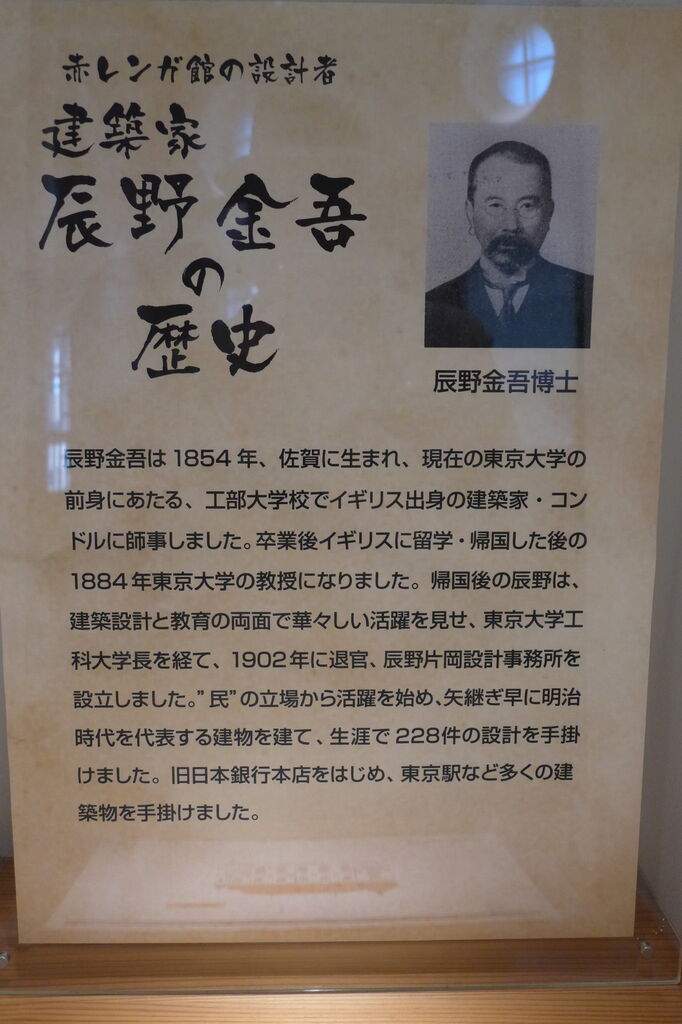 赤レンガ館の設計者
建築家
辰野金吾
の
歴史
辰野金吾博士
辰野金吾は1854年、佐賀に生まれ、現在の東京大学の
前身にあたる、工部大学校でイギリス出身の建築家・コン
ドルに師事しました。卒業後イギリスに留学・帰国した後の
1884年東京大学の教授になりました。帰国後の辰野は、
建築設計と教育の両面で華々しい活躍を見せ、東京大学工
科大学長を経て、1902年に退官、辰野片岡設計事務所を
設立しました。”民”の立場から活躍を始め、矢継ぎ早に明治
時代を代表する建物を建て、生涯で228件の設計を手掛
けました。旧日本銀行本店をはじめ、東京駅など多くの建
築物を手掛けました。